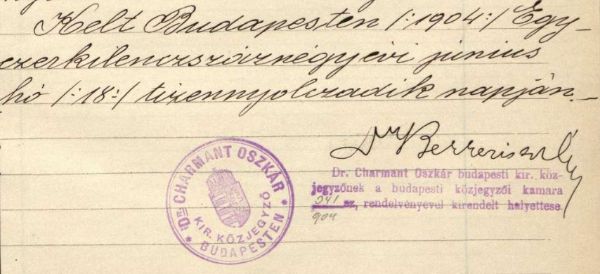 Kelt Budapesten /:1904:/ Egy-
ezerkilenczszáznégyévi június
hó /:18:/ tizennyolczadik napján.
Dr
Dr. Charmant Oszkár budapesti kir. köz-
jegyzőnek a budapesti közjegyzői kamara
341
sz, rendelvényével kirendelt helyettese
904
Dr CHARMANT OSZKÁR
KIR. KÖZJEGYZŐ
BUDAPESTEN